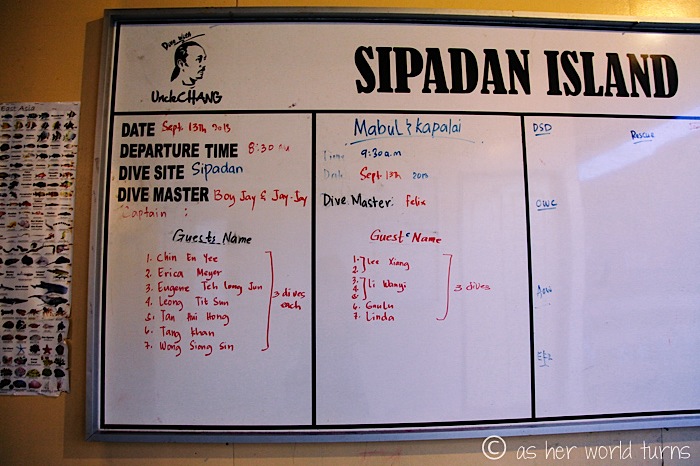 East Asia
Dive with
Uncle CHANG
SIPADAN ISLAND
DATE Sept 13th 2013
DEPARTURE TIME 8:30 am
DIVE SITE Sipadan
DIVE MASTER Boy Jay & Jay-Jay
Captain :
Guests Name
1. Chin En Yee
2. Erica Meyer
3. Eugene Teh Long Jun
4. Leong Tit Sun
5. Tan Hui Hong
6. Tang Khan
7. Wong Siong Sin
3 dives
each
Mabul & Kapalai
Time 9:30 a.m
Date Sept 13th 2013
Dive Master: Felix
Guest Name
1. Lee Xiang
2.
3. Li Wanyi
4.
5.
6. Gaulu
7. Linda
3 dives
DSD
Rescue
OWC
EFR
© as her world turns